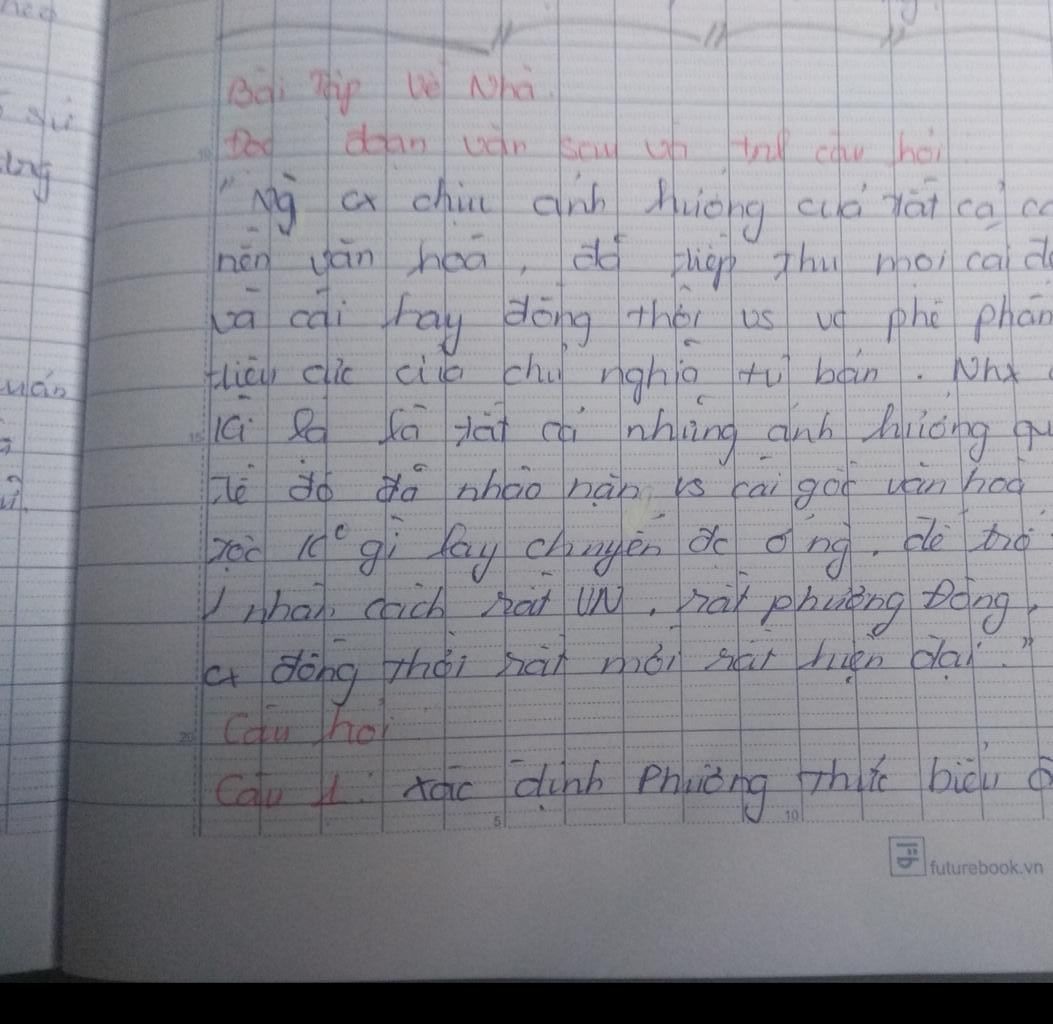 Bài Tập Về Nhà
Đọc đoạn văn sau và trả câu hỏi
"Ng cx chịu ảnh hưởng của tất cả
nền văn hoá, đã tiếp thu mọi cái
và cái hay đồng thời vs vc phê phán
tiêu cực của chủ nghĩa tư bản. Nhx
Kì lạ là tất cả những ảnh hưởng
tế đó đã nhào nặn vs cái gốc văn hoá
tộc Kº gì lay chuyển đc ở ng, để trở
1 nhân cách rất VN, rất phương Đông,
cx đồng thời rất mới rất hiện đại."
Câu hỏi
Câu 1: xác định Phương Thức biểu
5
10
15
20
futurebook.vn